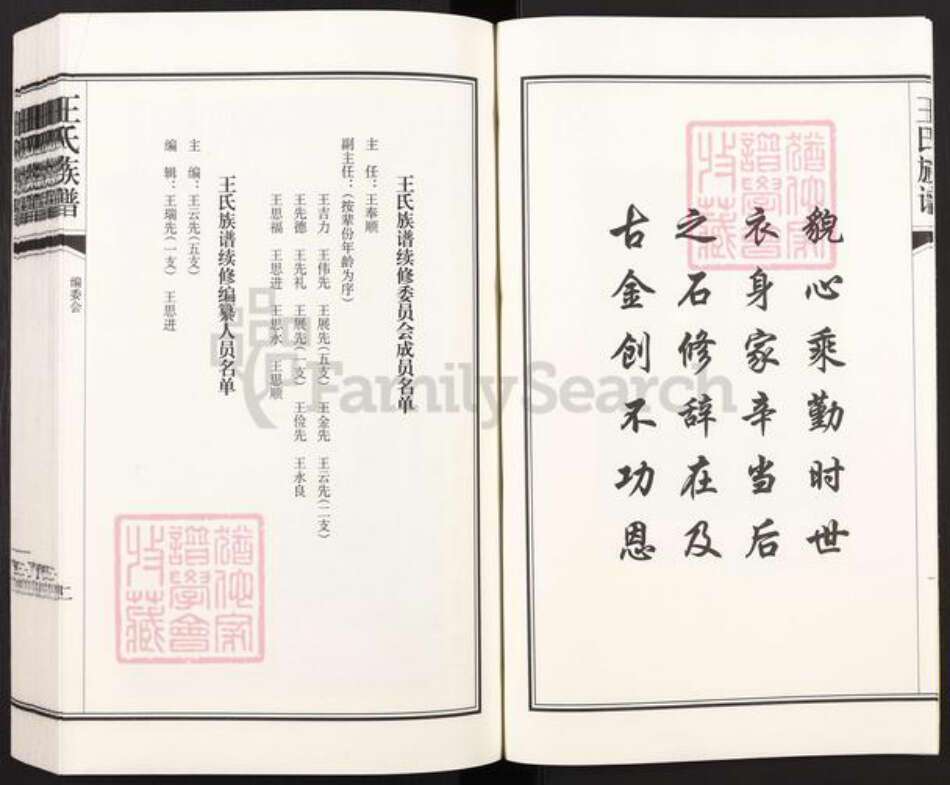 王氏族谱
古之衣貌
金石身心
创修家乘
不辞辛勤
功在当时
恩及后世
猶他家
譜學會
收藏
王氏族谱续修委员会成员名单
主 任：王奉顺
副主任：（按辈份年龄为序）
王吉力 王伟先 王展先（五支） 王金先 王云先（二支）
王先德 王先礼 王展先（一支） 王俭先 王水良
王思福 王思进 王思水 王思顺
王氏族谱续修编纂人员名单
主 编：王云先（五支）
编 辑：王瑞先（一支） 王思进
猶他家
譜學會
收藏
王氏族谱
编委会
二
FamilySearch